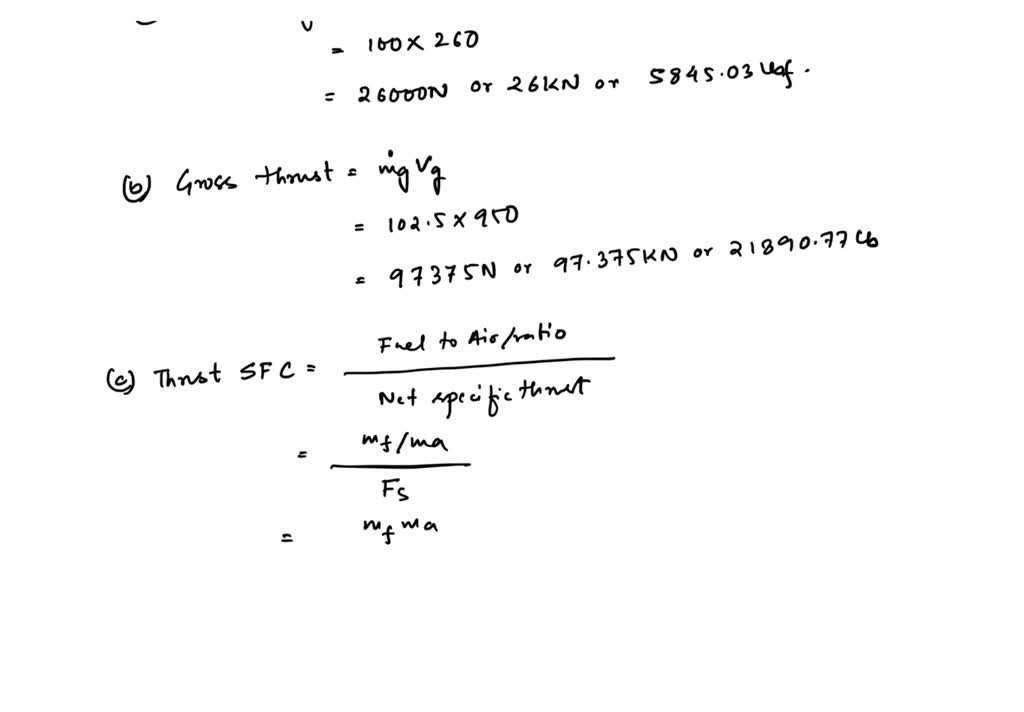 = 100 × 260
= 26000N or 26KN or 5845.03 lbf.
(b) Gross thrust = ṁg Vg
= 102.5 × 950
= 97375N or 97.375KN or 21890.77 lb
(c) Thrust SFC = Fuel to Air/ratio
Net specific thrust
= mf/ma
Fs
= mf ma